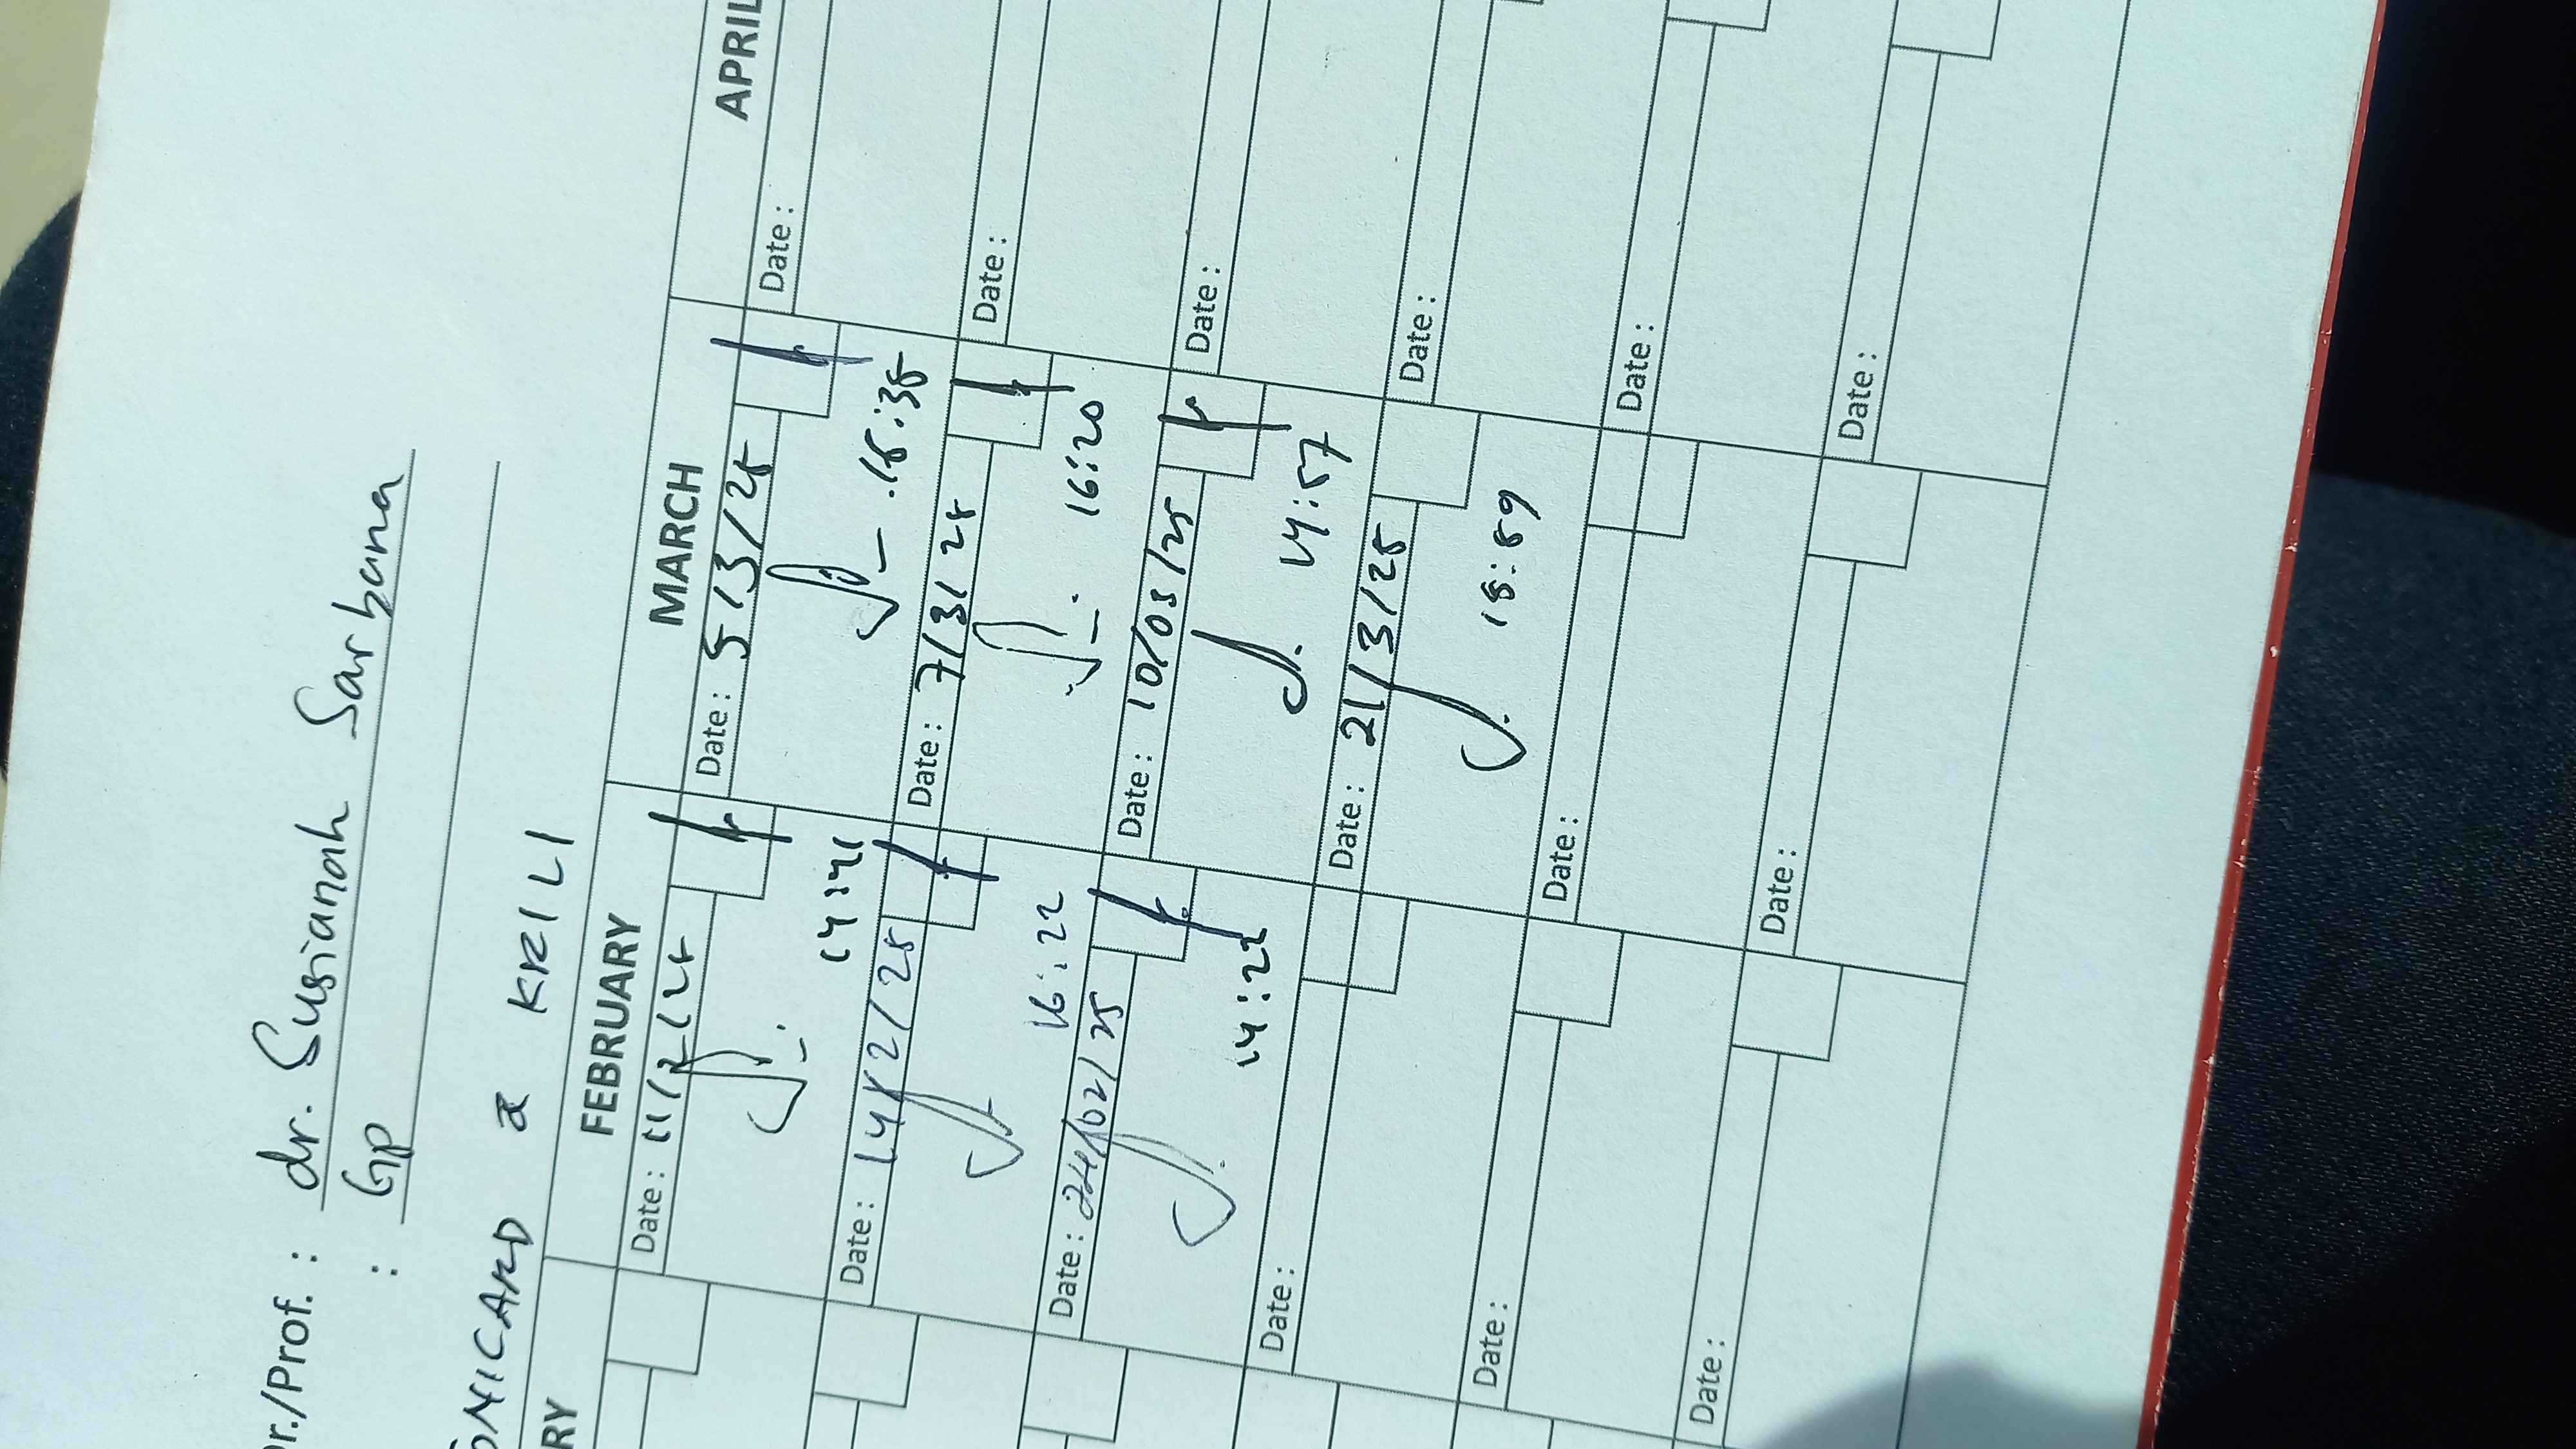 Dr./Prof. : dr. Susianah Sarbana
: GP
ONICARD a KRILI
RY FEBRUARY MARCH APRIL
Date : 11/2/25 Date : 5/3/25 Date :
14:41 16:35
Date : 14/2/25 Date : 7/3/25 Date :
16:22 16:20
Date : 24/02/25 Date : 10/03/25 Date :
14:22 14:57
Date : Date : 21/3/25 Date :
15:59
Date : Date : Date :
Date : Date : Date :